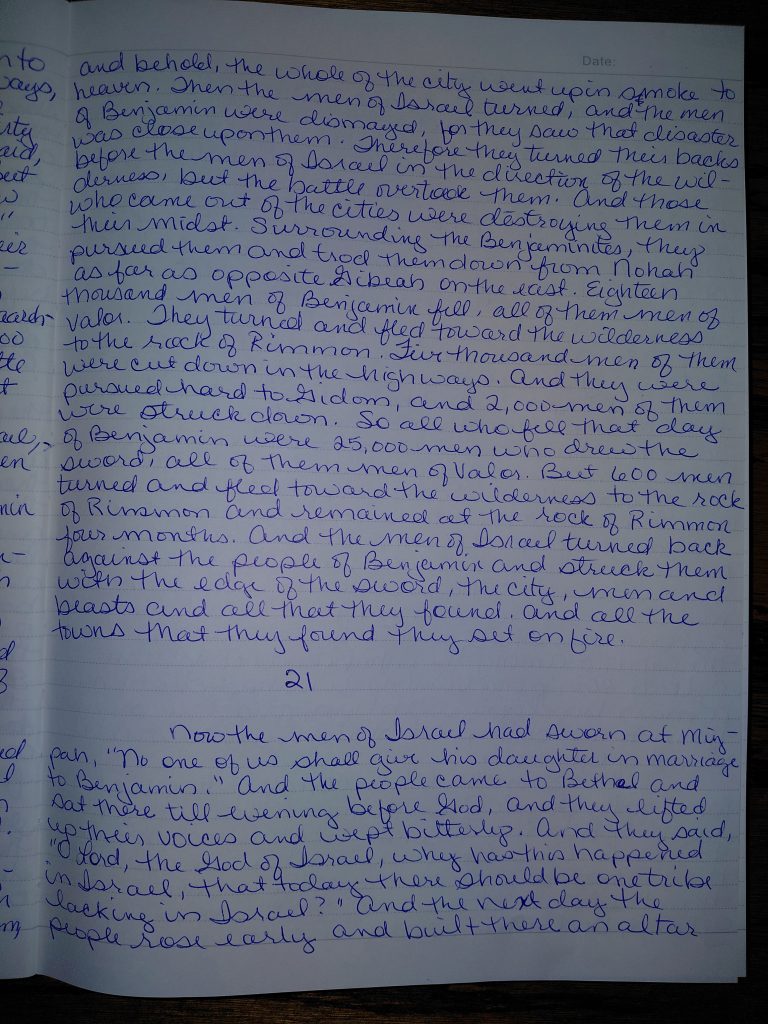 nto
ways,
rty
aid,
but
w
"
eir
-
aards-
00
tte
t
ael,
en
min
n-
n
d
3
ed
l
n
!
-
n
m,
Date:
and behold, the whole of the city went up in smoke to
heavn. Then the men of Israel turned, and the men
of Benjamin were dismayed, for they saw that disaster
was close upon them. Therefore they turned their backs
before the men of Israel in the direction of the wil-
derness, but the battle overtook them. And those
who came out of the cities were destroying them in
their midst. Surrounding the Benjaminites, they
pursued them and trod them down from Nohah
as far as opposite Gibeah on the east. Eighteen
thousand men of Benjamin fell, all of them men of
valor. They turned and fled toward the wilderness
to the rock of Rimmon. Five thousand men of them
were cut down in the highways. And they were
pursued hard to Gidom, and 2,000 men of them
were struck down. So all who fell that day
of Benjamin were 25,000 men who drew the
sword, all of them men of Valor. But 600 men
turned and fled toward the wilderness to the rock
of Rimmon and remained at the rock of Rimmon
four months. And the men of Israel turned back
against the people of Benjamin and struck them
with the edge of the sword, the city, men and
beasts and all that they found. And all the
towns that they found they set on fire.
21
Now the men of Israel had sworn at Miz-
pah, "No one of us shall give his daughter in marriage
to Benjamin." And the people came to Bethel and
sat there till evening before God, and they lifted
up their voices and wept bitterly. And they said,
"O Lord, the God of Israel, why has this happened
in Israel, that today there should be one tribe
lacking in Israel?" And the next day the
people rose early and built there an altar